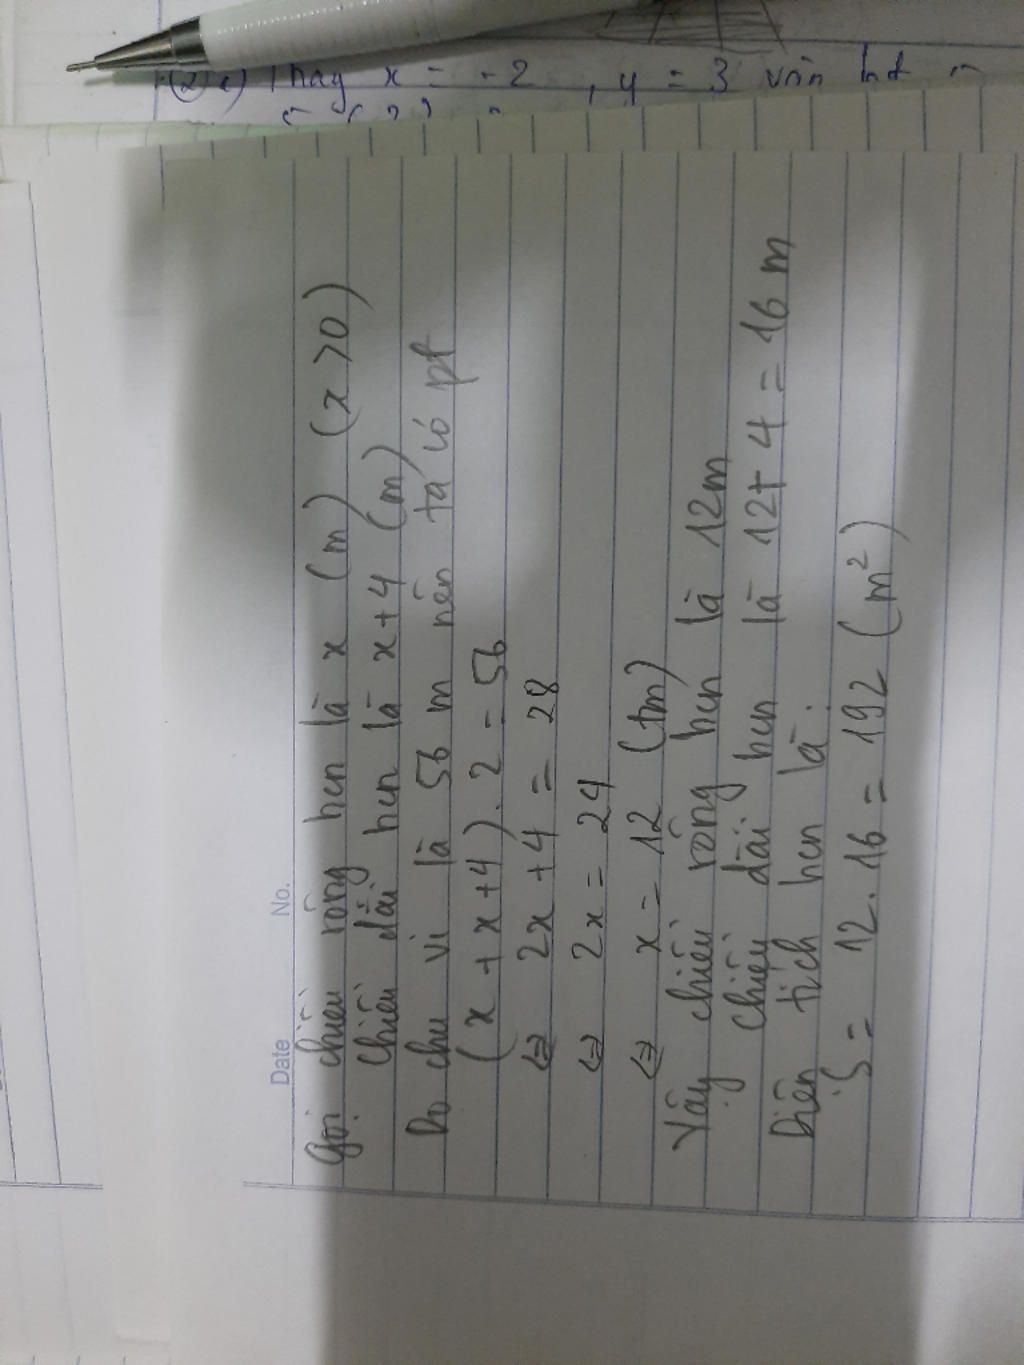 (2) c) Thay x = -2 , y = 3 vào hđ
Date No.
Gọi chiều rộng hcn là x (m) (x >0)
chiều dài hcn là x+4 (m)
Do chu vi là 56 m nên ta có pt
(x + x+4) . 2 = 56
⇔ 2x +4 = 28
⇔ 2x = 24
⇔ x = 12 (tm)
Vậy chiều rộng hcn là 12m
chiều dài hcn là 12+ 4 = 16 m
Diện tích hcn là:
S = 12 . 16 = 192 (m²)